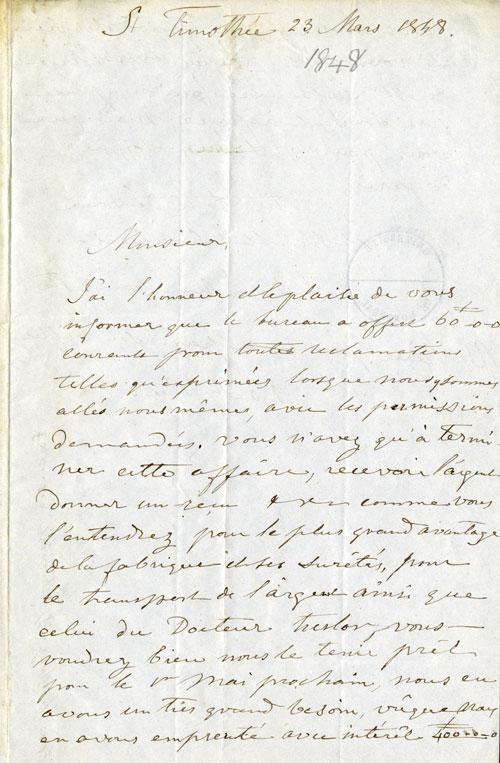 St Timothée 23 Mars 1848.
1848
Monsieur,
J'ai l'honneur et le plaisir de vous
informer que le bureau a offert 60 -0-0
courants pour toutes reclamations
telles qu'exprimées lorsque nous y sommes
allés nous mêmes, avec les permissions
demandées. vous n'avez qu'à termi-
ner cette affaire, recevoir l'argent
donner un recu comme vous
l'entendrez pour le plus grand avantage
de la fabrique et ses suretés, pour
le transport de l'argent ainsi que
celui du Docteur vous
voudrez bien nous le tenir prêt
pour le 1er mai prochain, nous en
avons un très grand besoin, vû que nous
en avons emprunté avec intérêt 400-0-0